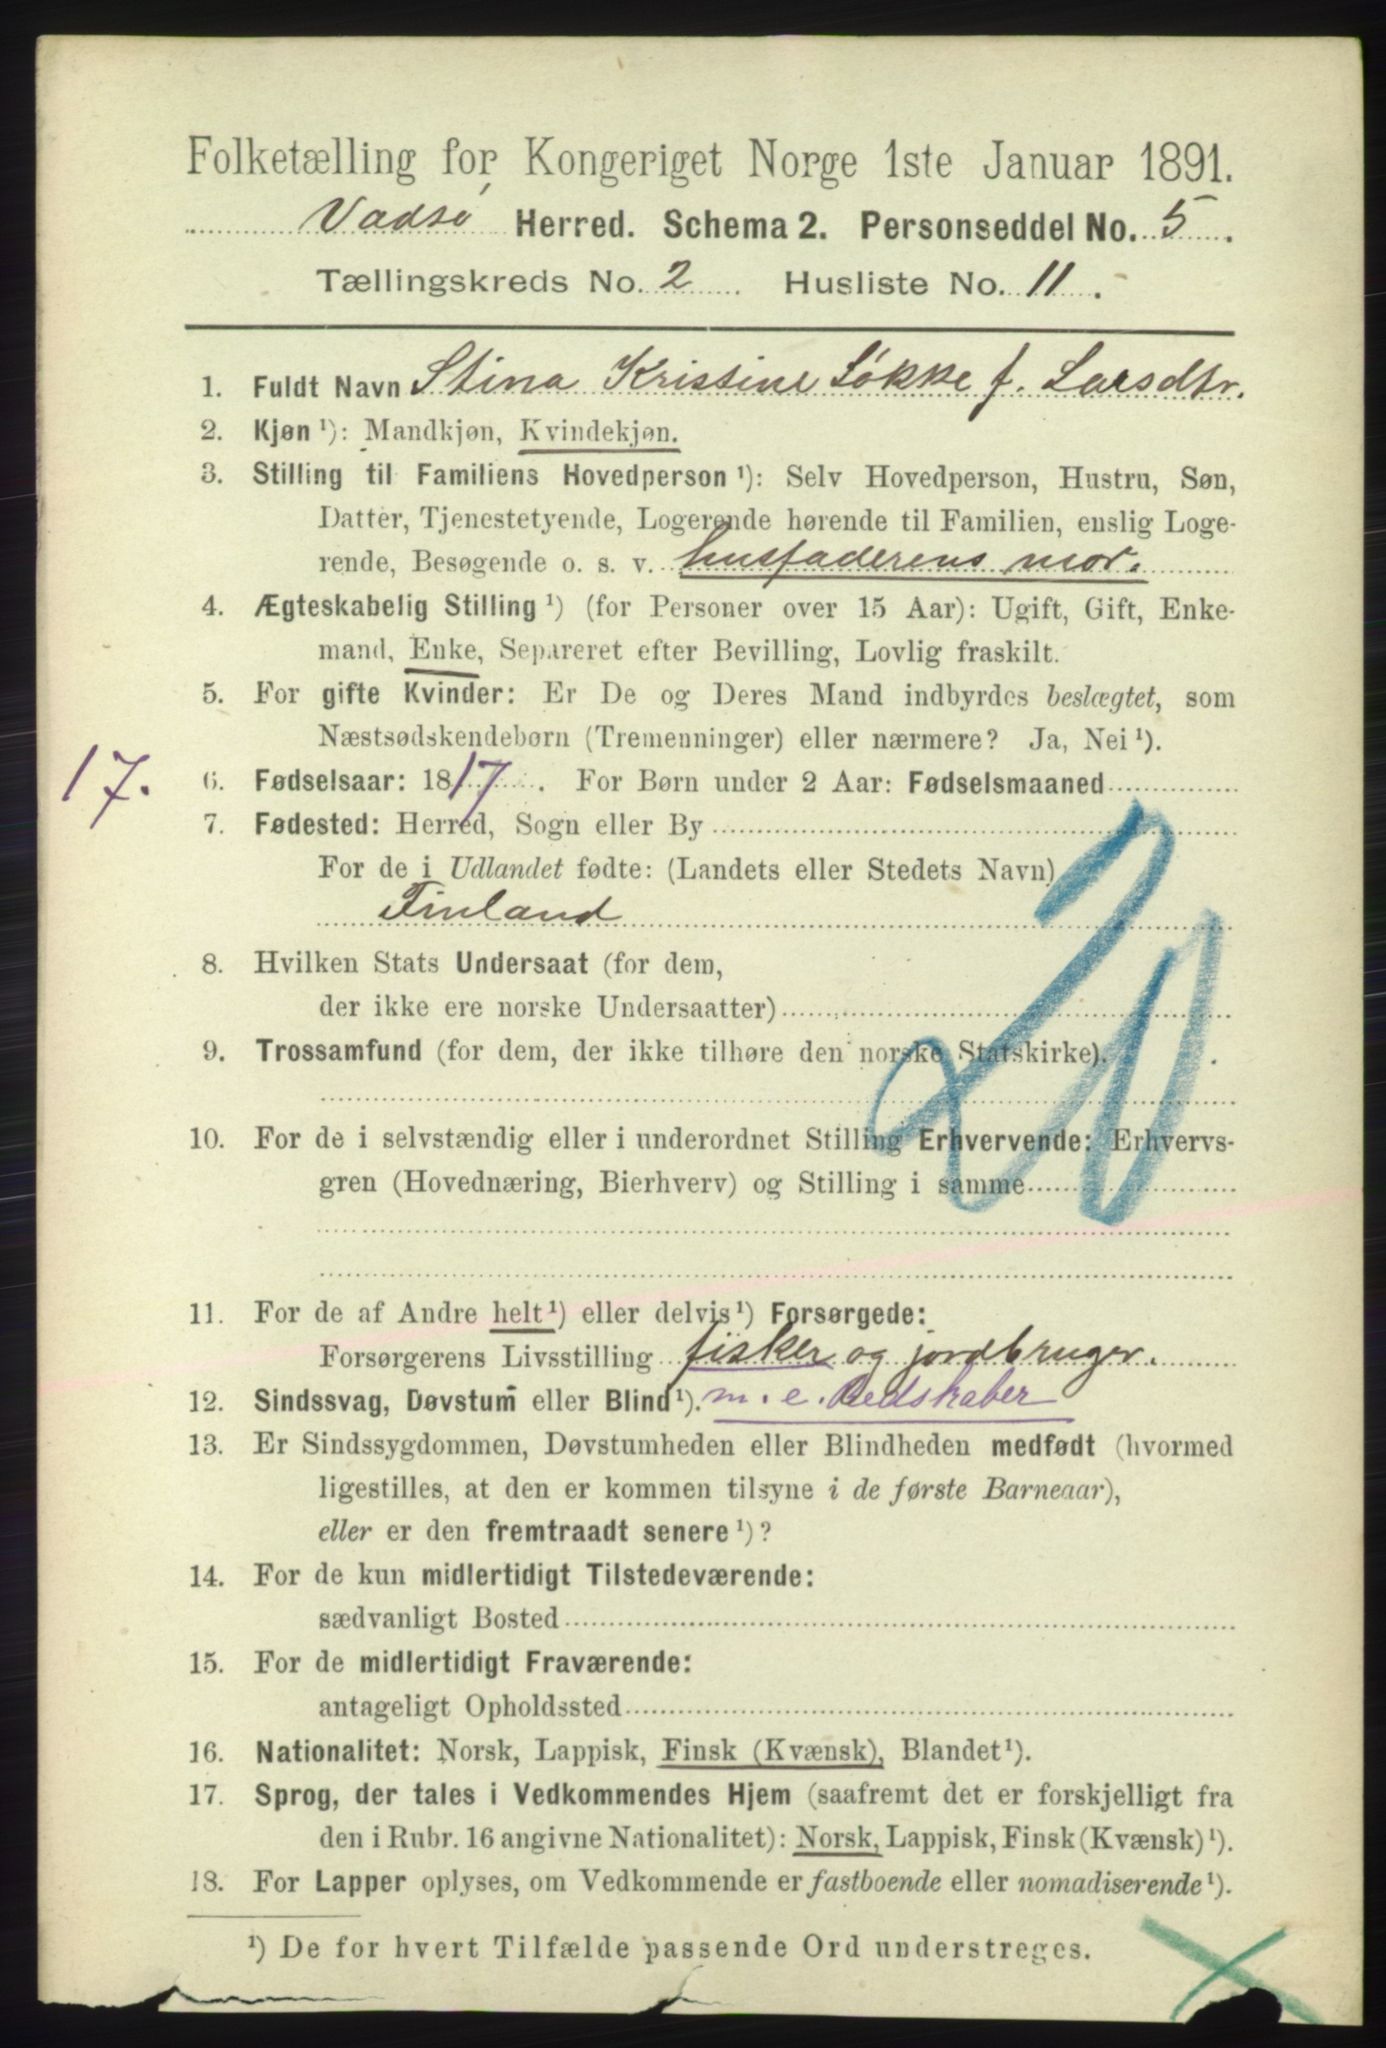 Folketælling for Kongeriget Norge 1ste Januar 1891.
Vadsø Herred. Schema 2. Personseddel No. 5.
Tællingskreds No. 2. Husliste No. 11.
1. Fuldt Navn Stina Kristine Løkke f. Larsdtr.
2. Kjøn ¹): Mandkjøn, Kvindekjøn.
3. Stilling til Familiens Hovedperson ¹): Selv Hovedperson, Hustru, Søn,
Datter, Tjenestetyende, Logerende hørende til Familien, enslig Loge-
rende, Besøgende o. s. v. husfaderens mor.
4. Ægteskabelig Stilling ¹) (for Personer over 15 Aar): Ugift, Gift, Enke-
mand, Enke, Separeret efter Bevilling, Lovlig fraskilt.
5. For gifte Kvinder: Er De og Deres Mand indbyrdes beslægtet, som
Næstsødskendebørn (Tremenninger) eller nærmere? Ja, Nei ¹).
17. 6. Fødselsaar: 1817. For Børn under 2 Aar: Fødselsmaaned
7. Fødested: Herred, Sogn eller By
For de i Udlandet fødte: (Landets eller Stedets Navn)
Finland
8. Hvilken Stats Undersaat (for dem,
der ikke ere norske Undersaatter)
9. Trossamfund (for dem, der ikke tilhøre den norske Statskirke).
10. For de i selvstændig eller i underordnet Stilling Erhvervende: Erhvervs-
gren (Hovednæring, Bierhverv) og Stilling i samme
11. For de af Andre helt ¹) eller delvis ¹) Forsørgede:
Forsørgerens Livsstilling fisker og jordbruger.
12. Sindssvag, Døvstum eller Blind ¹). m. e. Redskaber
13. Er Sindssygdommen, Døvstumheden eller Blindheden medfødt (hvormed
ligestilles, at den er kommen tilsyne i de første Barneaar),
eller er den fremtraadt senere ¹)?
14. For de kun midlertidigt Tilstedeværende:
sædvanligt Bosted
15. For de midlertidigt Fraværende:
antageligt Opholdssted
16. Nationalitet: Norsk, Lappisk, Finsk (Kvænsk), Blandet ¹).
17. Sprog, der tales i Vedkommendes Hjem (saafremt det er forskjelligt fra
den i Rubr. 16 angivne Nationalitet): Norsk, Lappisk, Finsk (Kvænsk) ¹).
18. For Lapper oplyses, om Vedkommende er fastboende eller nomadiserende ¹).
¹) De for hvert Tilfælde passende Ord understreges.